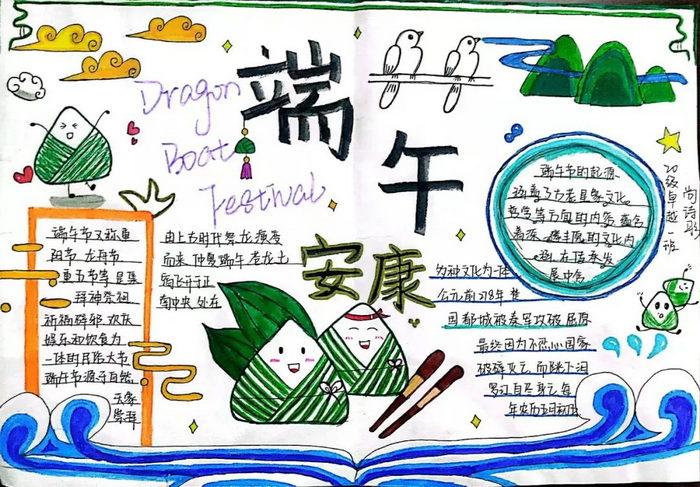 Dragon
Boat
Festival
端午
安康
端午节又称重
阳节 龙舟节
重五节等 是集
拜神祭祖
祈福辟邪 欢庆
娱乐和饮食为
一体的民俗大节
端午节源于自然
天象
崇拜
由上古时代祭龙演变
而来 仲夏端午 苍龙七
宿飞升于正
南中央 处在
端午节的起源
涵盖了古老星象文化
哲学等方面的内容 蕴含
着深 丰厚的文化内
涵
展中
为种文化为一体
公元前278年 楚
国都城被秦军攻破 屈原
最终因为不忍心国家
破碎灭亡 而跳下汨
罗江自尽身亡 每
年农历五月初五
20级卓越 班